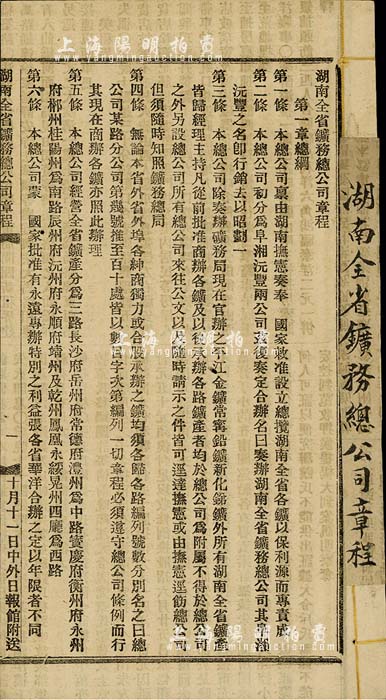 上海陽明拍賣
湖南全省鑛務總公司章程
湖南全省鑛務總公司章程
第一章總綱
第一條 本公司稟由湖南撫憲奏奉 國家敕准設立總攬湖南全省各鑛以保利源而專責成
第二條 本公司初分為阜湘沅豐兩公司茲復奏定合辦名曰奏辦湖南全省鑛務總公司其阜湘
沅豐之名卽行銷去以昭劃一
第三條 本公司除奏辦鑛務局現在官辦之平江金鑛常寧鉛鑛新化銻鑛外所有湖南全省鑛產
皆歸經理主持凡從前批准商辦各鑛及以後承辦各路鑛產者均於總公司為附屬不得於總公司
之外另設總公司所有總公司來往公文以及隨時請示之件皆可逕達撫憲或由撫憲逕飭總公司
但須隨時知照鑛務總局
第四條 無論本省外省外埠各紳商獨力或合股承辦之鑛均須各歸各路編列號數分別名之曰總
公司某路分公司第幾號推至百十處皆以數目字次第編列一切章程必須遵守總公司條例而行
其現在商辦各鑛亦照此辦理
第五條 本總公司經營全省鑛產分為三路長沙府岳州府常德府澧州為中路寶慶府衡州府永州
府郴州桂陽州為南路辰州府沅州府永順府靖州及乾州鳳凰永綏晃州四廳為西路
第六條 本總公司蒙 國家批准有永遠專辦特別之利益張各省華洋合辦之定以年限者不同
湖南全省鑛務總公司章程
一
十月十一日中外日報館附送
上海陽明拍賣
上海陽明拍賣